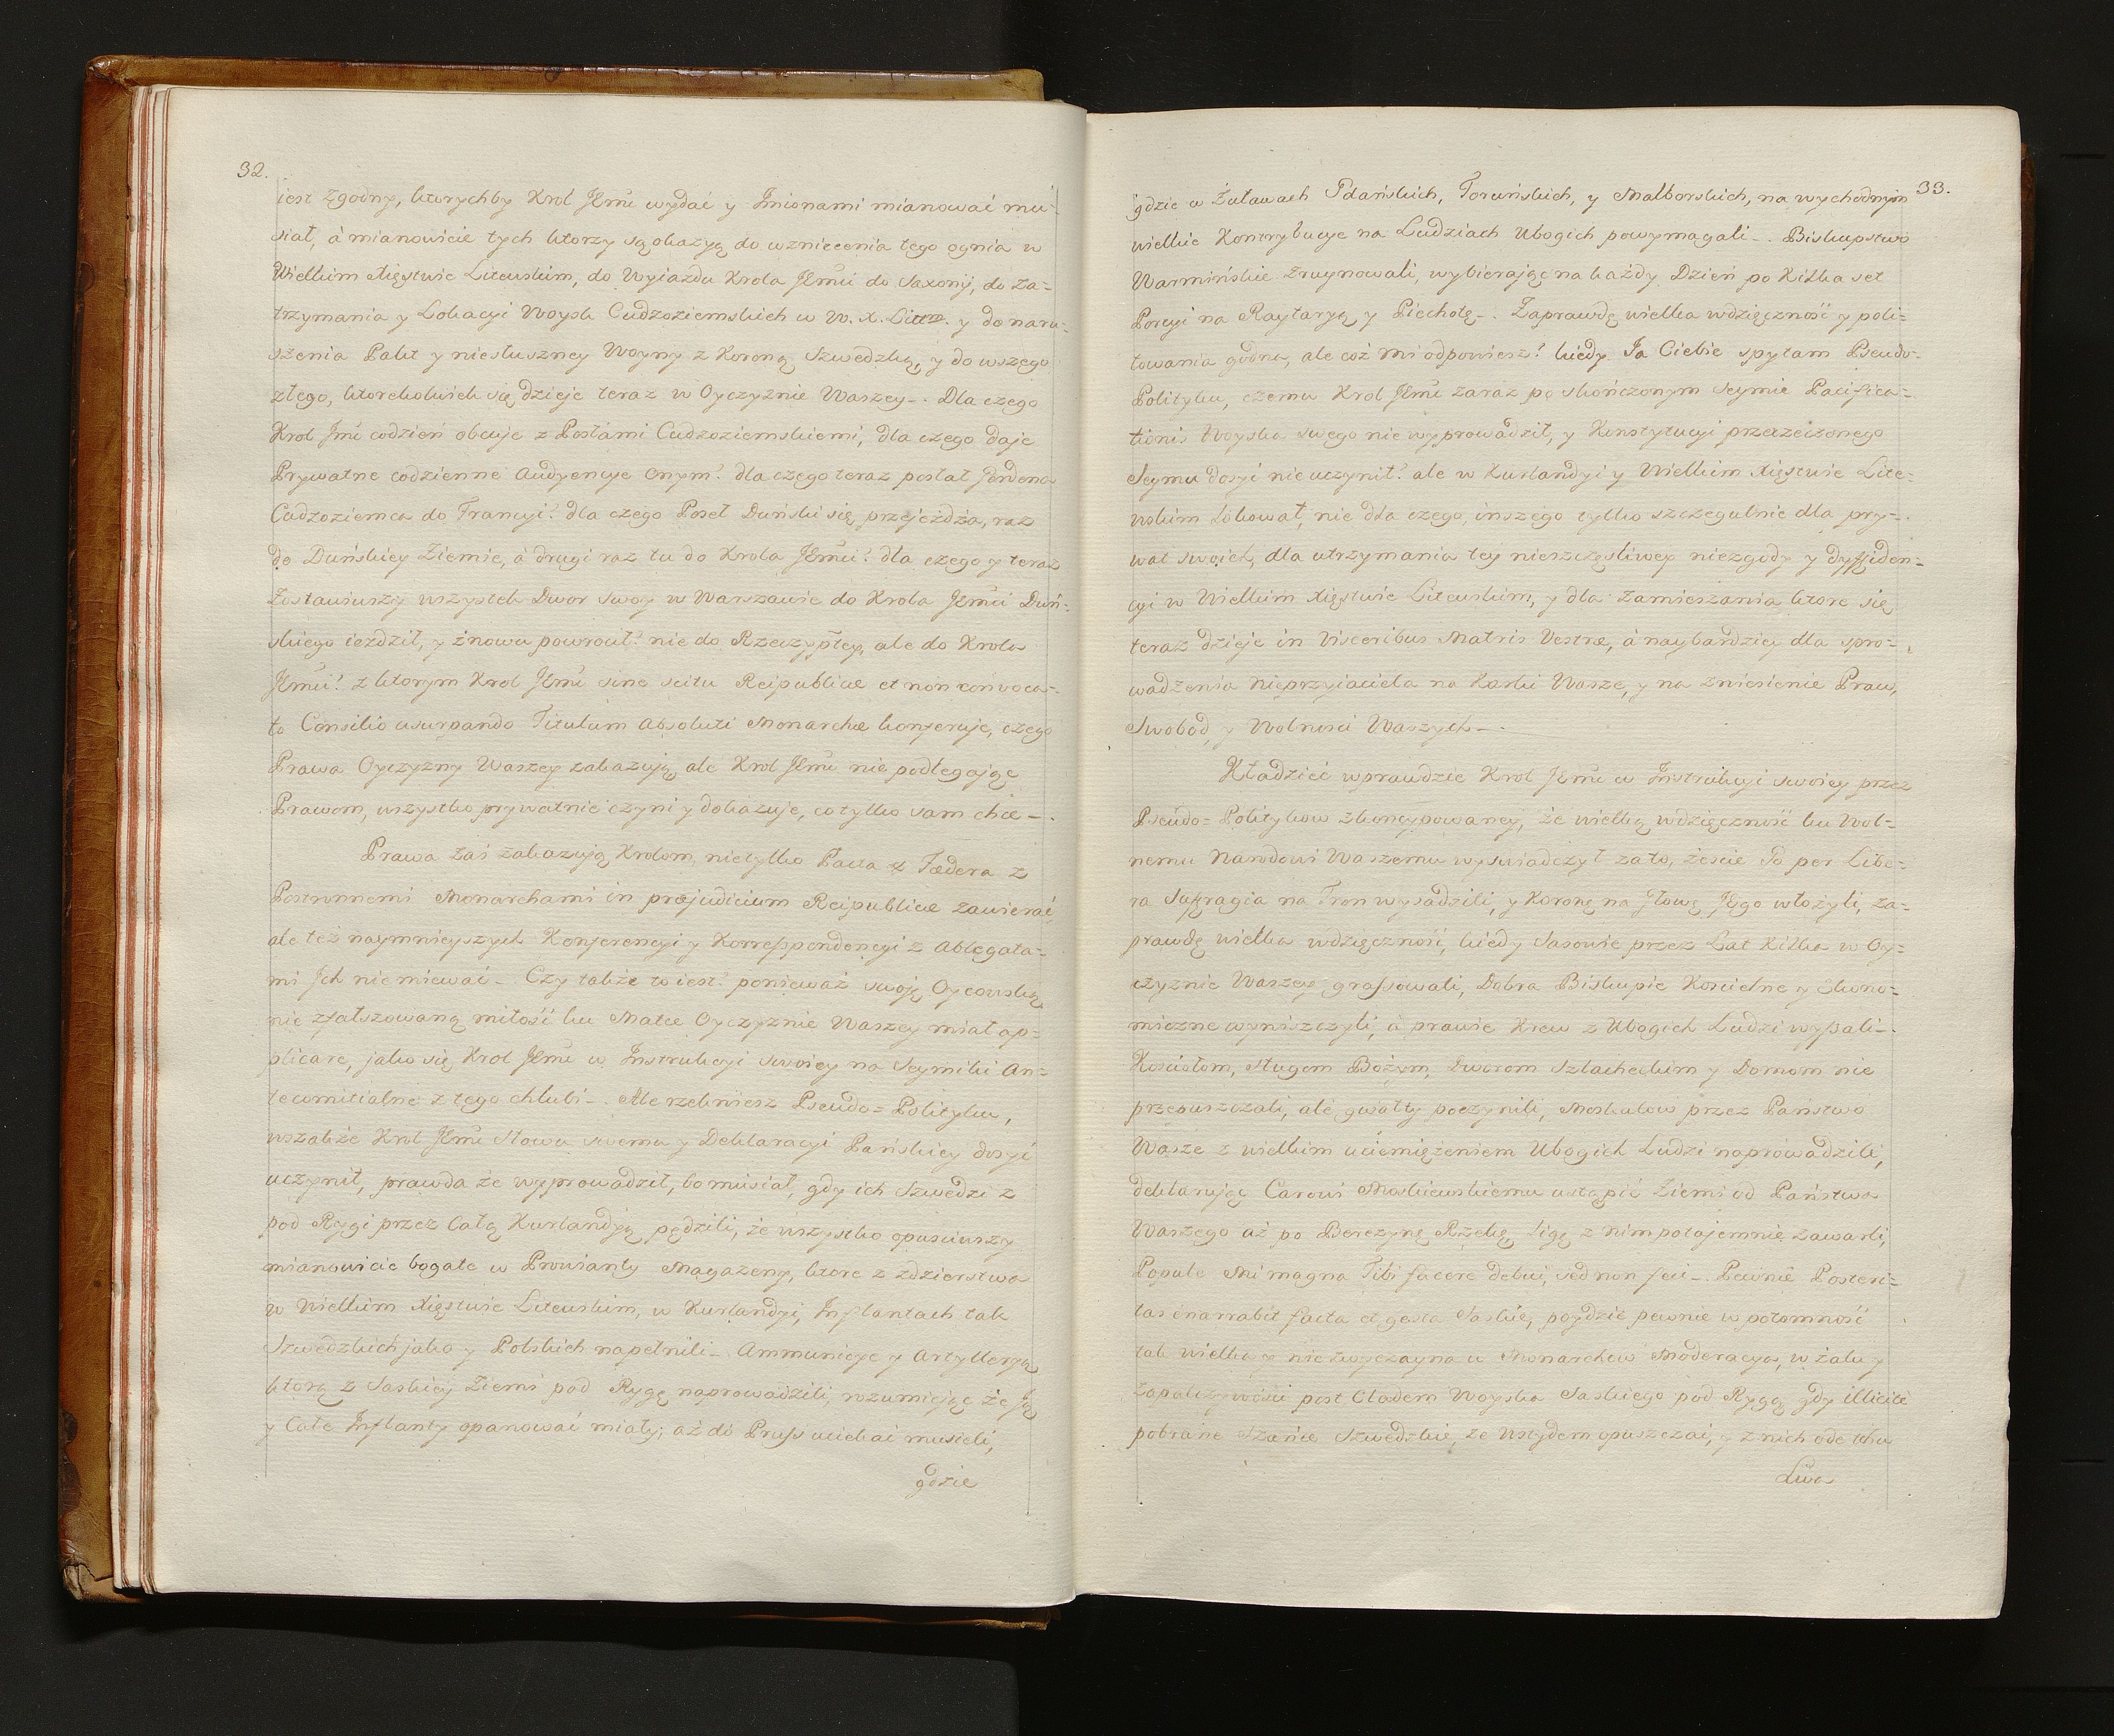 32.
iest zgodny, ktorychby Krol JEmć wydać y Imionami mianować mu-
siał, à mianowicie tych ktorzy są okazyą do wzniecenia tego ognia w
Wielkim Xięstwie Litewskim, do Wyiazdu Krola JEmci do Saxonij, do za=
trzymania y Lokacyi Woysk Cudzoziemskich w W. X. Littm. y do naru-
szenia Pakt y niesłuszney Woyny z Koroną Szwedzką, y do wszego
złego, ktorekolwiek się dzieje teraz w Oyczyznie Waszey -. Dla czego
Krol Jmć codzień obcuje z Posłami Cudzoziemskiemi, dla czego daje
Prywatne codzienne Audyencye Onym? dla czego teraz posłał Jordena
Cudzoziemca do Francyi? dla czego Poseł Duński się przejeżdża, raz
do Duńskiey Ziemie, à drugi raz tu do Krola JEmci? dla czego y teraz
Zostawiwszy wszystek Dwor swoy w Warszawie do Krola JEmci Duń-
skiego ieździł, y znowu powrocił? nie do Rzeczypltey, ale do Krola
JEmci! z ktorym Krol JEmć sine scitu Reipublicæ et non convoca-
to Consilio usurpando Titulum Absoluti Monarchæ konferuje, czego
Prawa Oyczyzny Waszey zakazują, ale Krol JEmć nie podlegając
Prawom, wszystko prywatnie czyni y dokazuje, co tylko sam chce -.
Prawa zaś zakazują Krolom, nietylko Pacta & Fædera z
Postronnemi Monarchami in præjudicium Reipublicæ zawierać,
ale też naymnieyszych Konferencyi y Korrespondencyi z Ablegata-
mi Ich nie miewać - Czy także to iest? ponieważ swoję Oycowską
nie zfałszowaną miłość ku Matce Oyczyznie Waszey miał ap-
plicare, jako się Krol JEmć w Instrukcyi swoiey na Seymiki An-
tecomitialne z tego chlubi -. Ale rzekniesz Pseudo=Polityku,
wszakże Krol JEmć Słowu swemu y Deklaracyi Pańskiey dosyć
uczynił, prawda że wyprowadził, bo musiał, gdy ich Szwedzi z
pod Rygi przez Całą Kurlandyą pędzili, że wszystko opuściwszy
mianowicie bogate w Prowianty Magazeny, ktore z zdzierstwa
w Wielkim Xięstwie Litewskim, w Kurlandyi, Inflantach tak
Szwedzkich jako y Polskich napełnili - Ammunicye y Artylleryą
ktorą z Saskiey Ziemi pod Rygę naprowadzili, rozumiejąc że Ją
y Całe Inflanty opanować miały; aż do Pruss uciekać musieli,
gdzie
33.
gdzie w Żuławach Gdańskich, Toruńskich, y Malborskich, na wychodnym
wielkie Kontrybucye na Ludziach Ubogich powymagali -. Biskupstwo
Warmińskie Zruynowali, wybierając na każdy Dzień po Kilka set
Porcyi na Raytaryą y Piechotę -. Zaprawdę wielka wdzięczność y poli-
towania godna, ale coż mi odpowiesz! kiedy Ja Ciebie spytam Pseudo-
Polityku, czemu Krol JEmć zaraz po skończonym Seymie Pacifica-
tionis Woyska swego nie wyprowadził, y Konstytucyi przerzeczonego
Seymu dosyć nie uczynił? ale w Kurlandyi y Wielkim Xięstwie Lite-
wskim lokował, nie dla czego inszego tylko szczegulnie dla pry-
wat swoich, dla utrzymania tey nieszczęśliwey niezgody y dyffiden-
cyi w Wielkim Xięstwie Litewskim, y dla zamieszania ktore się
teraz dzieje in Visceribus Matris Vestræ, à naybardziey dla spro-
wadzenia Nieprzyiaciela na Karki Wasze, y na zniesienie Praw,
Swobod, y Wolności Waszych -.
Kładzieć wprawdzie Krol JEmć w Instrukcyi swoiey przez
Pseudo=Politykow zkoncypowaney, że wielką wdzięczność ku Wol-
nemu Narodowi Waszemu wyświadczył za to, żeście Go per Libe-
ra Suffragia na Tron wysadzili, y Koronę na głowę Jego włożyli, za-
prawdę wielka wdzięczność, kiedy Sasowie przez Lat Kilka w Oy-
czyznie Waszey grassowali, Dobra Biskupie Koscielne y Ekono-
miczne wyniszczyli, à prawie Krew z Ubogich Ludzi wyssali -.
Kościołom, sługom Bożym, Dworom Szlacheckim y Domom nie
przepuszczali, ale gwałty poczynili, Moskalow przez Państwo
Wasze z wielkim uciemiężeniem Ubogich Ludzi naprowadzili,
deklarując Carowi Moskiewskiemu ustąpić Ziemi od Państwa
Waszego aż po Berezynę Rzekę, Ligę z nim potajemnie zawarli,
Popule Mi magna Tibi facere debui, sed non feci -. Pewnie Posteri-
tas enarrabit facta et gesta Saskie, poydzie pewnie w potomność
tak wielka y niezwyczayna u Monarchow Moderacya, w żalu y
Zapalczywości post Cladem Woyska Saskiego pod Rygą, gdy illicite
pobrane Szańce Szwedzkie, ze Wstydem opuszczać, y z nich ode lwa
Lwa